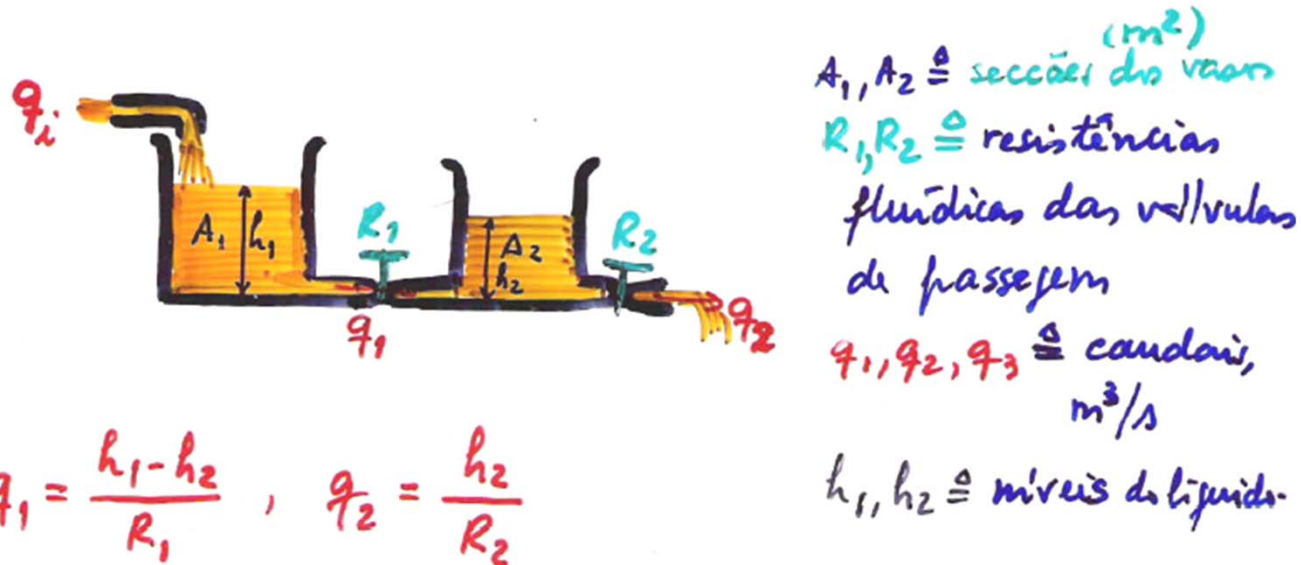 qi
A1
h1
R1
q1
A2
h2
R2
q2
q1 = (h1 - h2) / R1 , q2 = h2 / R2
(m²)
A1, A2 ≜ secções dos vasos
R1, R2 ≜ resistências
fluídicas das válvulas
de passagem
q1, q2, q3 ≜ caudais,
m³/s
h1, h2 ≜ níveis do líquido.